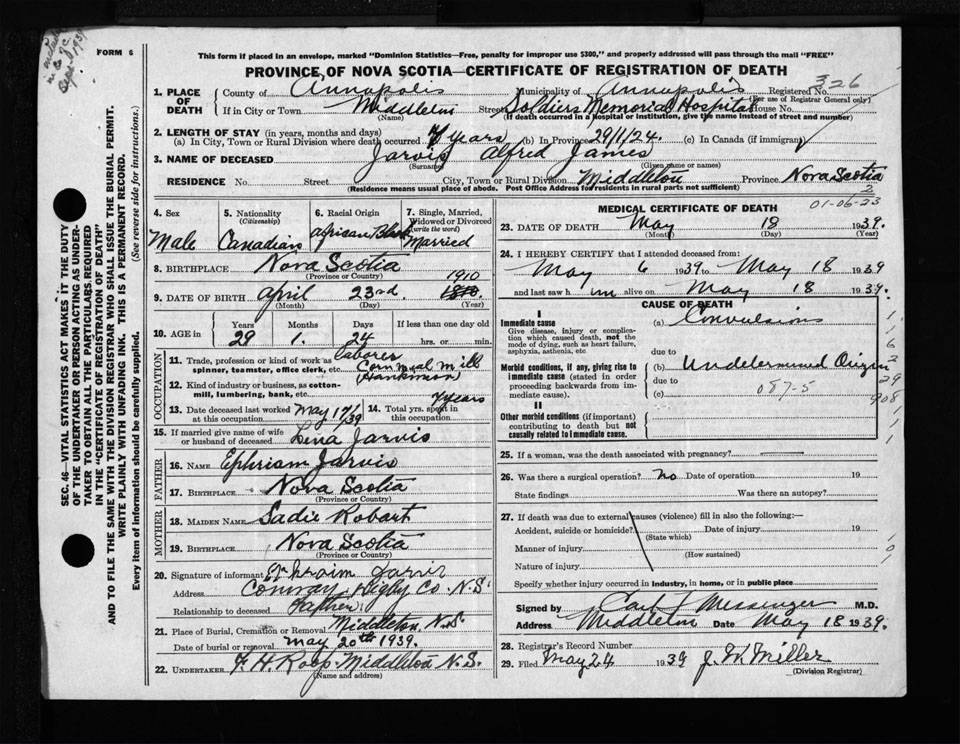 Sept 1939
FORM 6
This form if placed in an envelope, marked "Dominion Statistics—Free, penalty for improper use $300," and properly addressed will pass through the mail "FREE"
PROVINCE OF NOVA SCOTIA—CERTIFICATE OF REGISTRATION OF DEATH
326
1. PLACE OF DEATH
County of Annapolis Municipality of Annapolis Registered No.
(For use of Registrar General only)
If in City or Town Middleton Street Soldiers Memorial Hospital House No.
(Name) (If death occurred in a hospital or institution, give the name instead of street and number)
2. LENGTH OF STAY (in years, months and days)
(a) In City, Town or Rural Division where death occurred 7 years (b) In Province 29/1/24. (c) In Canada (if immigrant)
3. NAME OF DECEASED Jarvis Alfred James
(Surname) (Given name or names)
RESIDENCE No. Street City, Town or Rural Division Middleton Province Nova Scotia
(Residence means usual place of abode. Post Office Address for residents in rural parts not sufficient)
2
01-06-23
4. Sex
Male
5. Nationality
(Citizenship)
Canadian
6. Racial Origin
African Black
7. Single, Married, Widowed or Divorced
(write the word)
Married
8. BIRTHPLACE Nova Scotia
(Province or Country)
1910
9. DATE OF BIRTH April 23rd.
(Month) (Day) (Year)
10. AGE in
Years Months Days If less than one day old
29 1. 24 hrs. or min.
OCCUPATION
11. Trade, profession or kind of work as spinner, teamster, office clerk, etc. laborer
Corn meal mill
12. Kind of industry or business, as cotton-mill, lumbering, bank, etc.
13. Date deceased last worked at this occupation May 17/39
14. Total yrs. spent in this occupation 7 years
15. If married give name of wife or husband of deceased Lena Jarvis
FATHER
16. NAME Ephriam Jarvis
17. BIRTHPLACE Nova Scotia
(Province or Country)
MOTHER
18. MAIDEN NAME Sadie Robart
19. BIRTHPLACE Nova Scotia
(Province or Country)
20. Signature of informant Ephraim Jarvis
Address Conway, Digby Co. N.S.
Relationship to deceased Father
21. Place of Burial, Cremation or Removal Middleton, N.S.
Date of burial or removal May 20th 1939.
22. UNDERTAKER F. H. Roop Middleton N.S.
(Name and address)
MEDICAL CERTIFICATE OF DEATH
23. DATE OF DEATH May 18 1939.
(Month) (Day) (Year)
24. I HEREBY CERTIFY that I attended deceased from:
May 6 1939 to May 18 1939
and last saw him alive on May 18 1939.
CAUSE OF DEATH
I
Immediate cause
Give disease, injury or complication which caused death, not the mode of dying, such as heart failure, asphyxia, asthenia, etc.
(a) Convulsions
due to
Morbid conditions, if any, giving rise to immediate cause (stated in order proceeding backwards from immediate cause).
(b) Undetermined Origin
due to
(c) 087-5
II
Other morbid conditions (if important) contributing to death but not causally related to immediate cause.
25. If a woman, was the death associated with pregnancy?
26. Was there a surgical operation? no Date of operation 19
State findings Was there an autopsy?
27. If death was due to external causes (violence) fill in also the following:—
Accident, suicide or homicide? Date of injury 19
(State which)
Manner of injury
(How sustained)
Nature of injury
Specify whether injury occurred in industry, in home, or in public place
Signed by Carl J Messenger M.D.
Address Middleton Date May 18 1939.
28. Registrar's Record Number
29. Filed May 24 1939 J. W. Miller
(Division Registrar)
SEC. 46—VITAL STATISTICS ACT MAKES IT THE DUTY OF THE UNDERTAKER OR PERSON ACTING AS UNDERTAKER TO OBTAIN ALL THE PARTICULARS REQUIRED IN THE "CERTIFICATE OF REGISTRATION OF DEATH"
AND TO FILE THE SAME WITH THE DIVISION REGISTRAR WHO SHALL ISSUE THE BURIAL PERMIT.
WRITE PLAINLY WITH UNFADING INK. THIS IS A PERMANENT RECORD.
Every item of information should be carefully supplied. (See reverse side for instructions.)